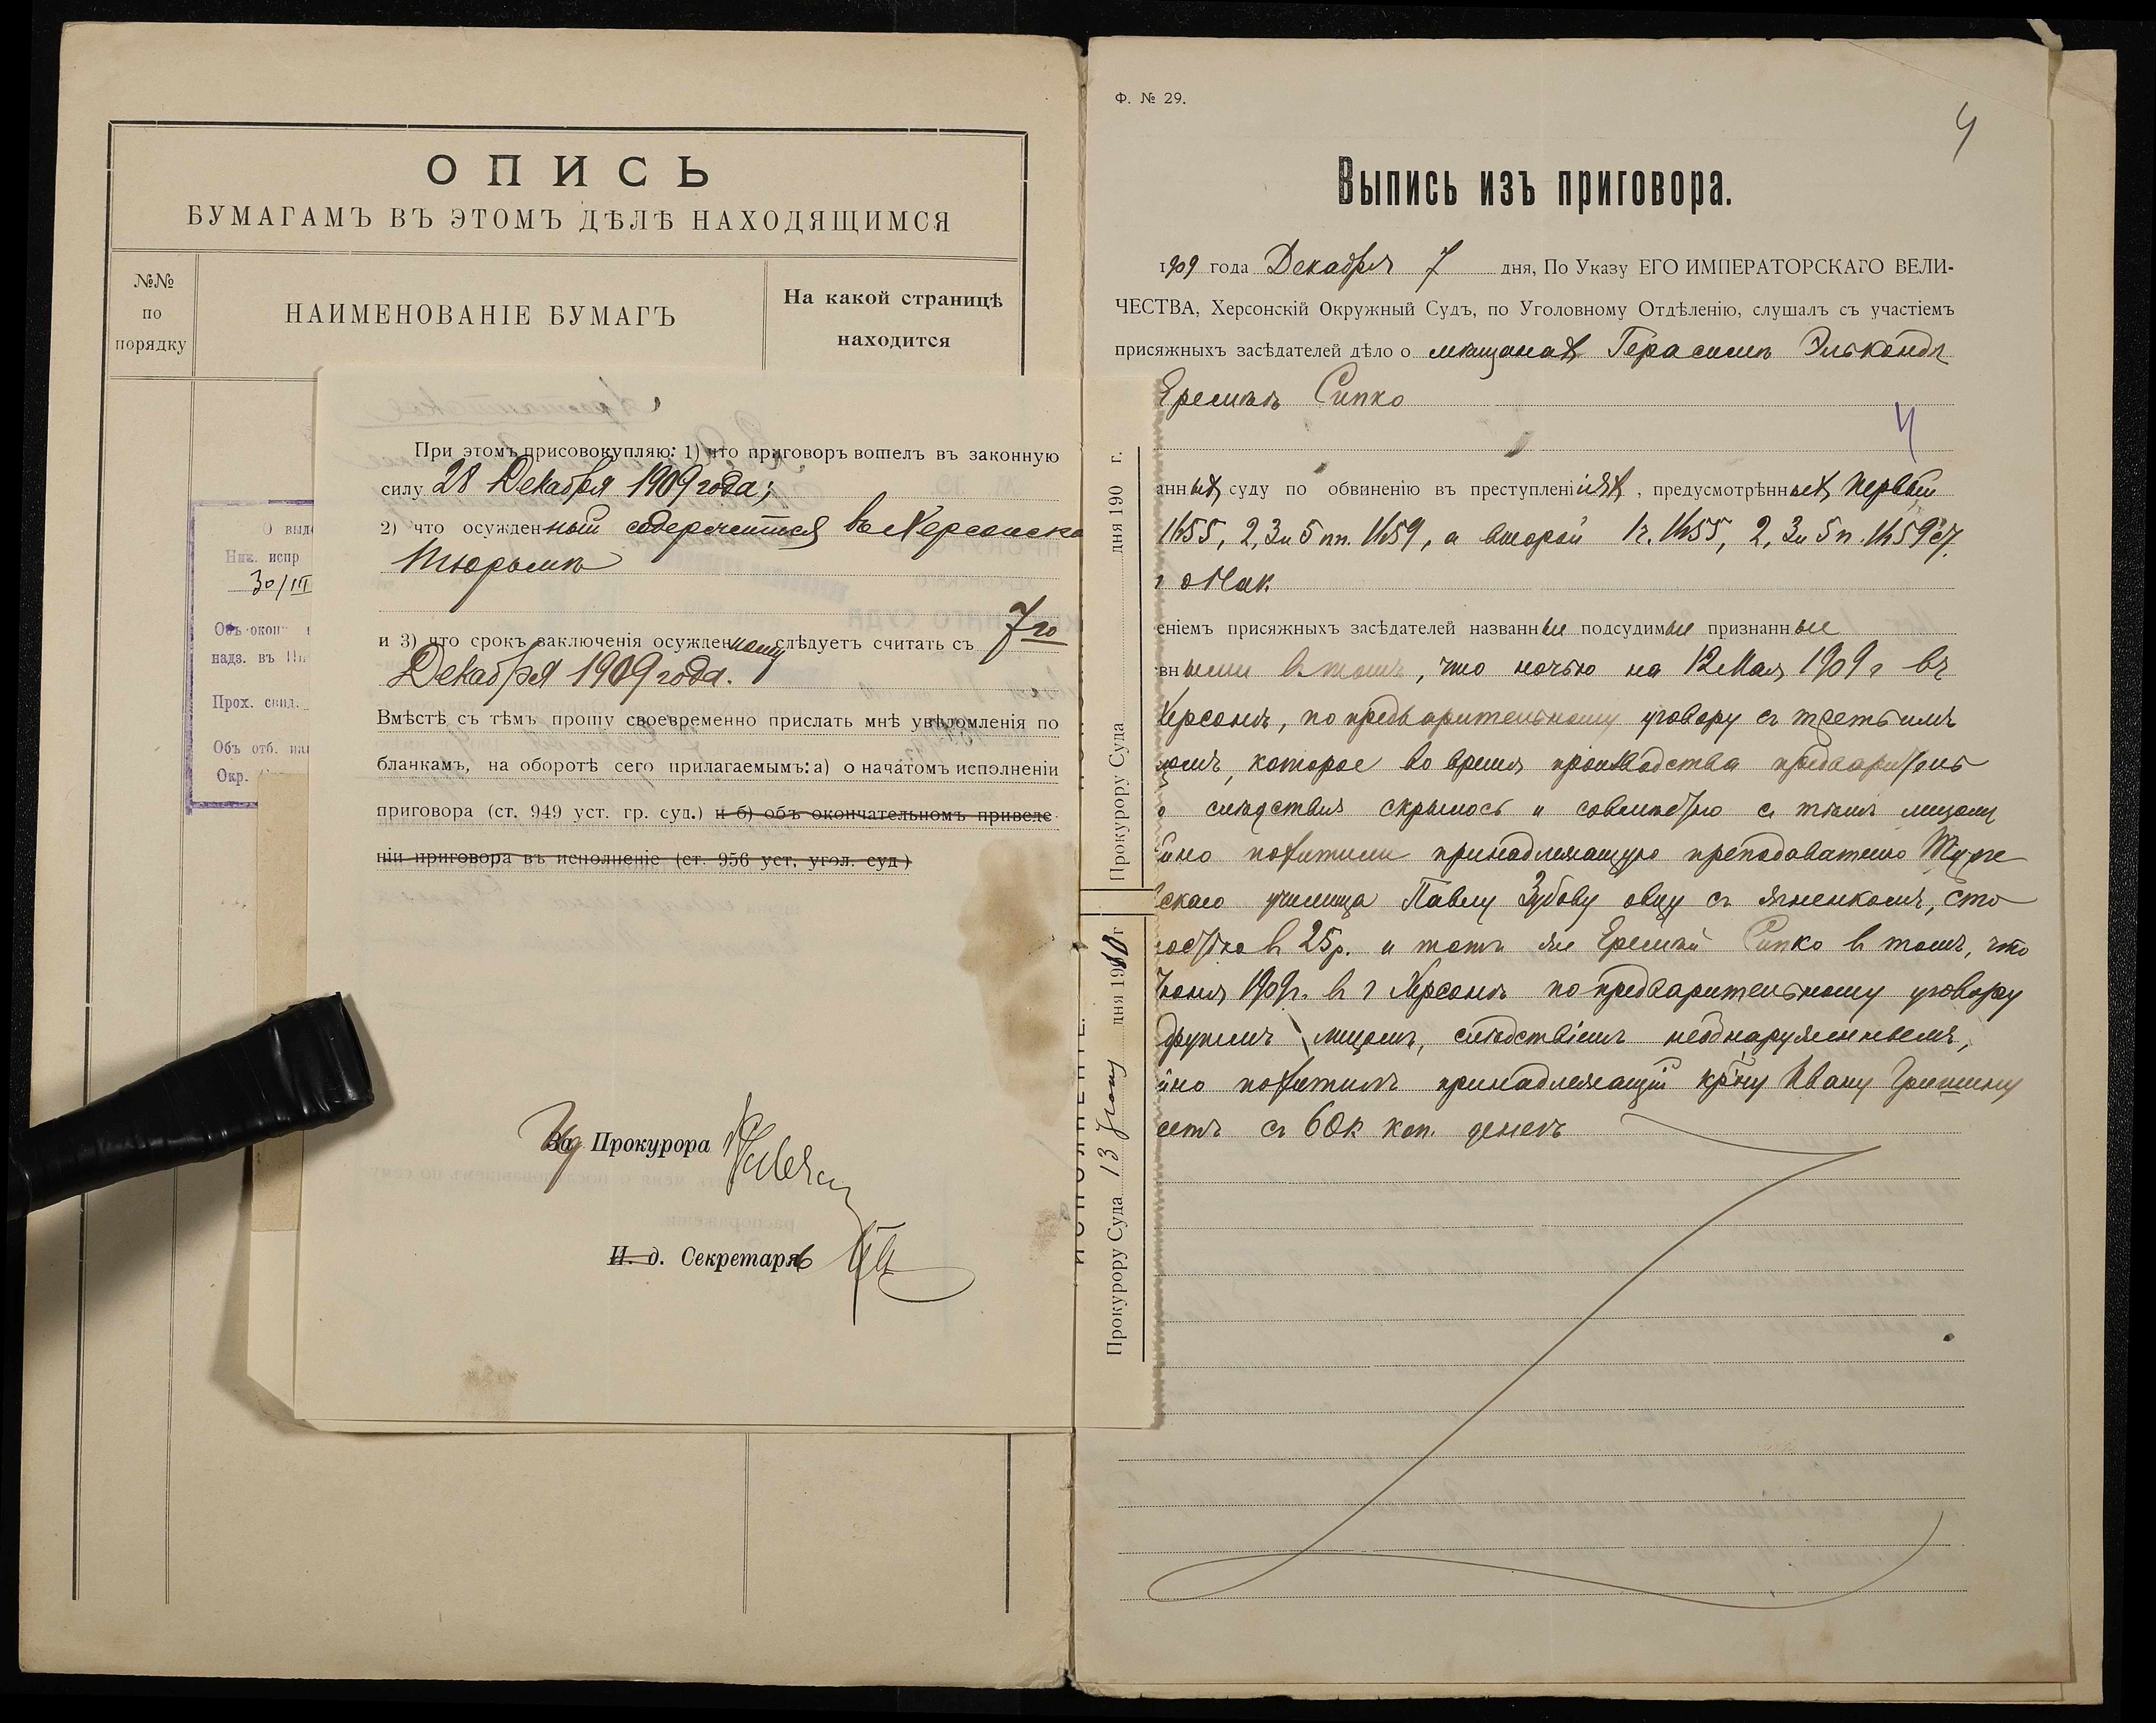 ОПИСЬ
БУМАГАМЪ ВЪ ЭТОМЪ ДѢЛѢ НАХОДЯЩИМСЯ
№№
по
порядку
НАИМЕНОВАНІЕ БУМАГЪ
На какой страницѣ
находится
О выд
Ник. испр
30/III
Объ окон
надз. въ
Прох. свид.
Объ отб.
Окр.
При этомъ присовокупляю: 1) что приговоръ вошелъ въ законную
силу 28 Декабря 1909 года;
2) что осужденный содержится въ Херсонско
тюрьмѣ
и 3) что срокъ заключенія осужденному слѣдуетъ считать съ 7го
Декабря 1909 года.
Вмѣстѣ съ тѣмъ прошу своевременно прислать мнѣ увѣдомленія по
бланкамъ, на оборотѣ сего прилагаемымъ: а) о начатомъ исполненіи
приговора (ст. 949 уст. гр. суд.) и б) объ окончательномъ приведе-
ніи приговора въ исполненіе (ст. 956 уст. угол. суд.)
Прокурора
И. д. Секретарь
дня 190 г.
Прокурору Суда
дня 1910 г
Прокурору Суда 13
Ф. № 29.
4
Выпись изъ приговора.
1909 года Декабря 7 дня, По Указу ЕГО ИМПЕРАТОРСКАГО ВЕЛИ-
ЧЕСТВА, Херсонскій Окружный Судъ, по Уголовному Отдѣленію, слушалъ съ участіемъ
присяжныхъ засѣдателей дѣло о мѣщанах Герасимѣ
Еремѣѣ Сипко
4
анных суду по обвиненію въ преступленіях, предусмотрѣнных первый
1655, 2, 3 и 5 пп. 1659, а второй 1 ч. 1655, 2, 3 и 5 п. 1659 ст.
о Нак
еніемъ присяжныхъ засѣдателей названные подсудимые признанные
вными въ томъ, что ночью на 12 Мая 1909 г въ
Херсонѣ, по предварительному уговору съ третьимъ
цомъ, которое во время производства предварительн
о слѣдствія скрылось и совмѣстно съ тѣмъ лицомъ
йно похитили принадлежащую преподавателю
скаго училища Павлу Зубову овцу съ ягненкомъ, сто
мостью въ 25р. и тотъ же Еремѣй Сипко въ томъ, что
Іюня 1909г. въ г Херсонѣ по предварительному уговору
другимъ лицомъ, слѣдствіемъ необнаруженнымъ,
йно похитилъ принадлежащій кр-ну Ивану Гришину
съ 60к коп. денегъ